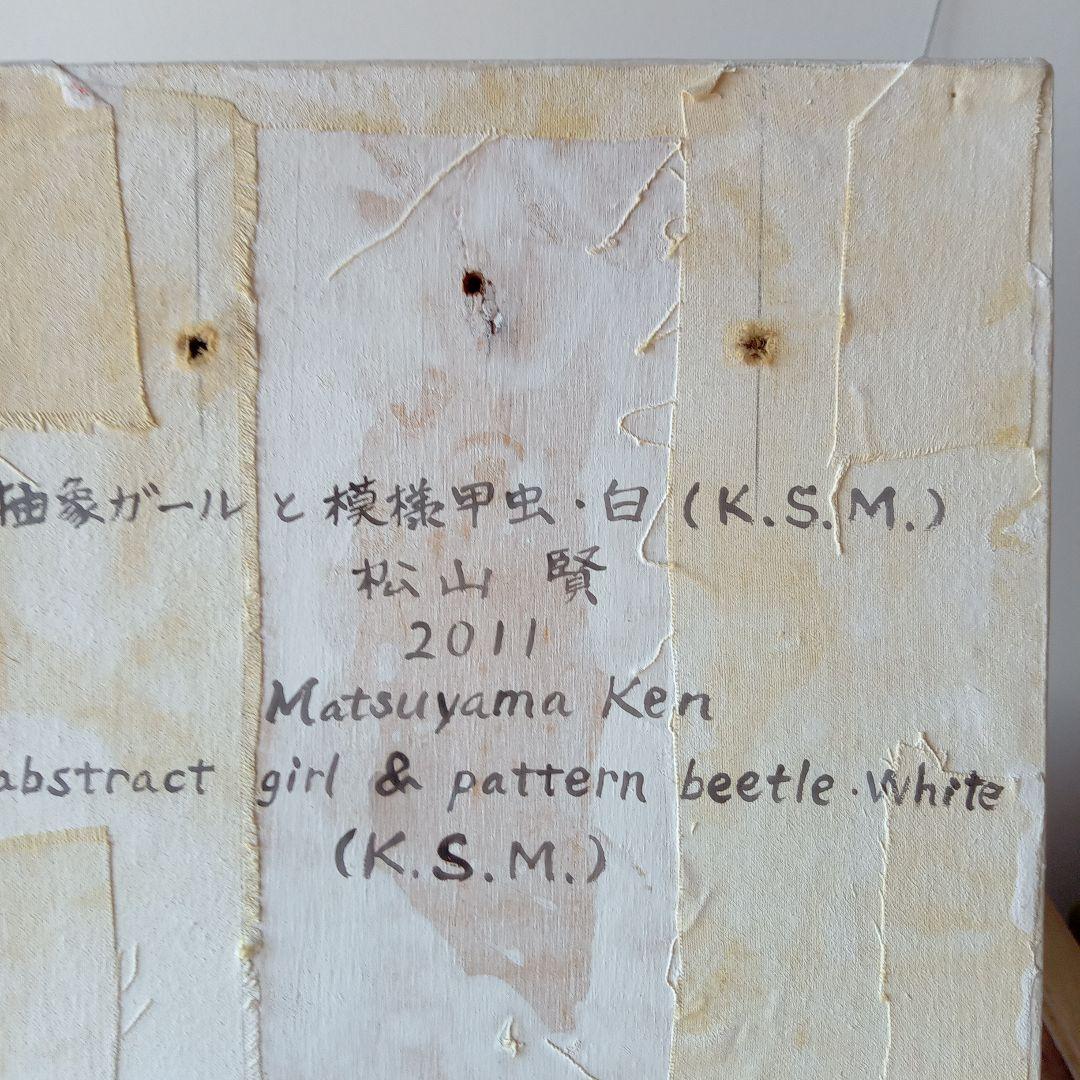 抽象ガールと模様甲虫・白(K.S.M.)
松山 賢
2011
Matsuyama Ken
abstract girl & pattern beetle・White
(K.S.M.)